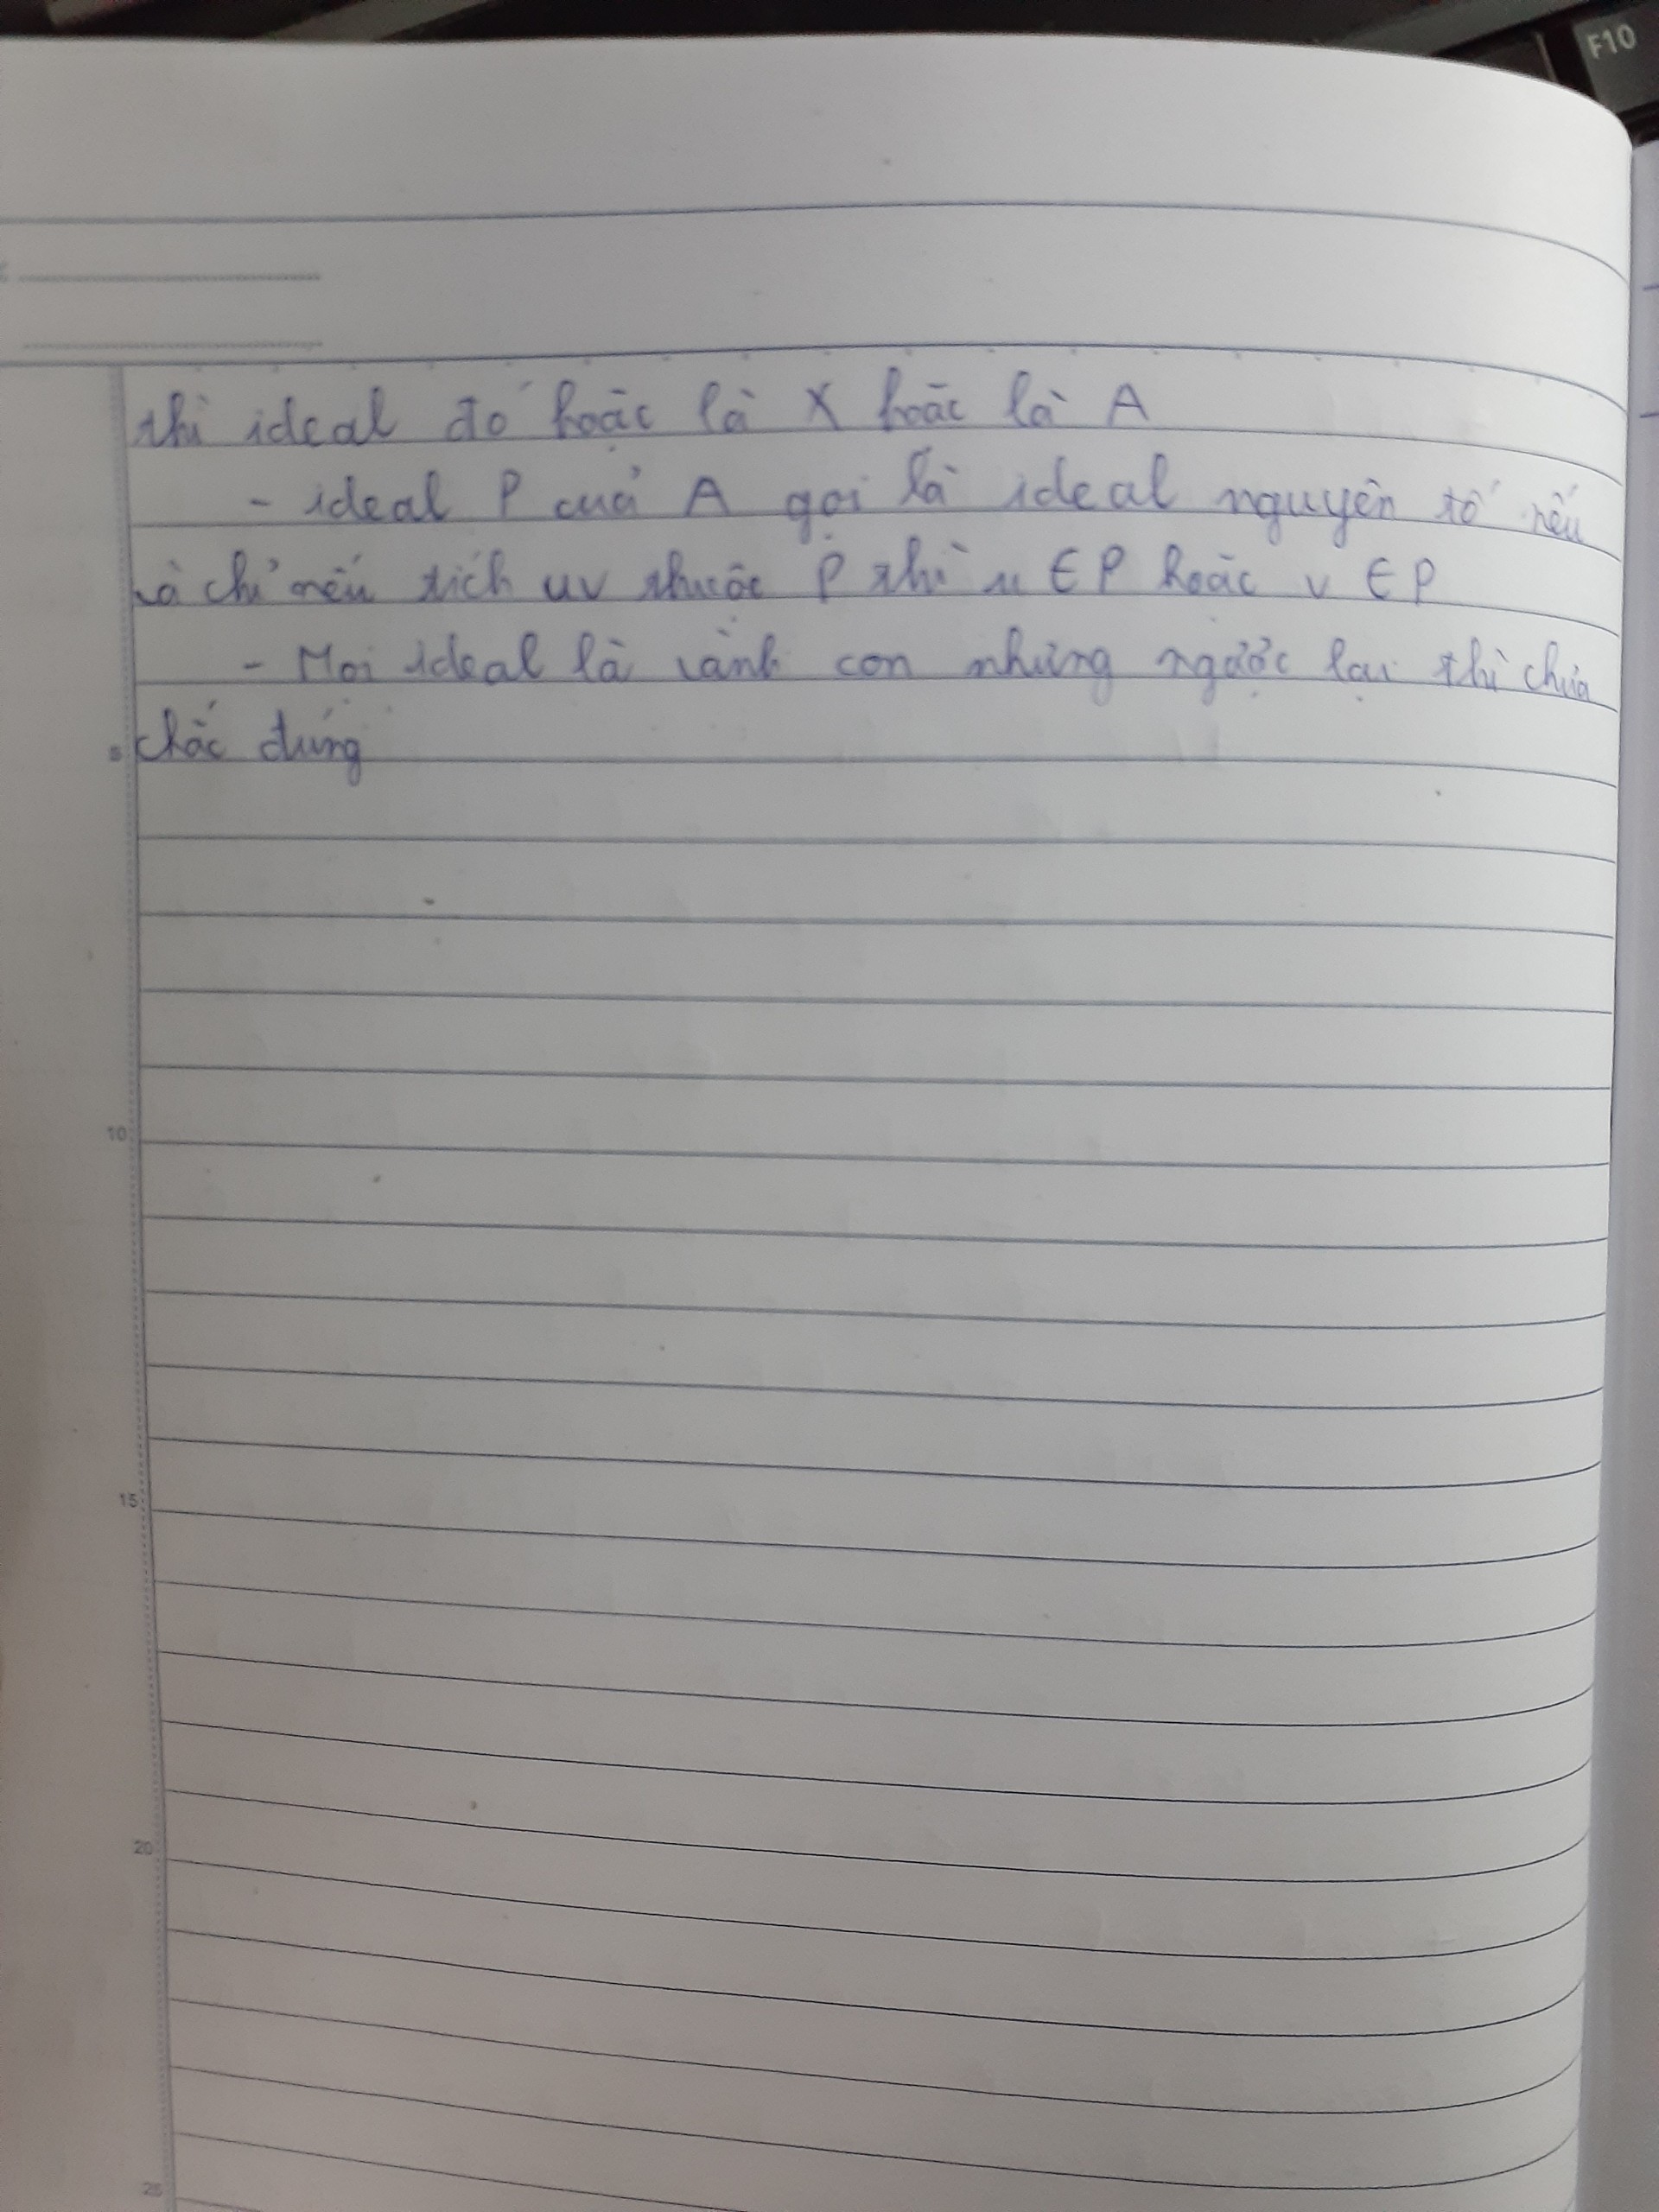 F10
thì ideal đó hoặc là X hoặc là A
- ideal P của A gọi là ideal nguyên tố nếu
và chỉ nếu tích uv thuộc P thì u ∈ P hoặc v ∈ P
- Mọi ideal là vành con nhưng ngược lại thì chưa
5 chắc đúng
10
15
20
25